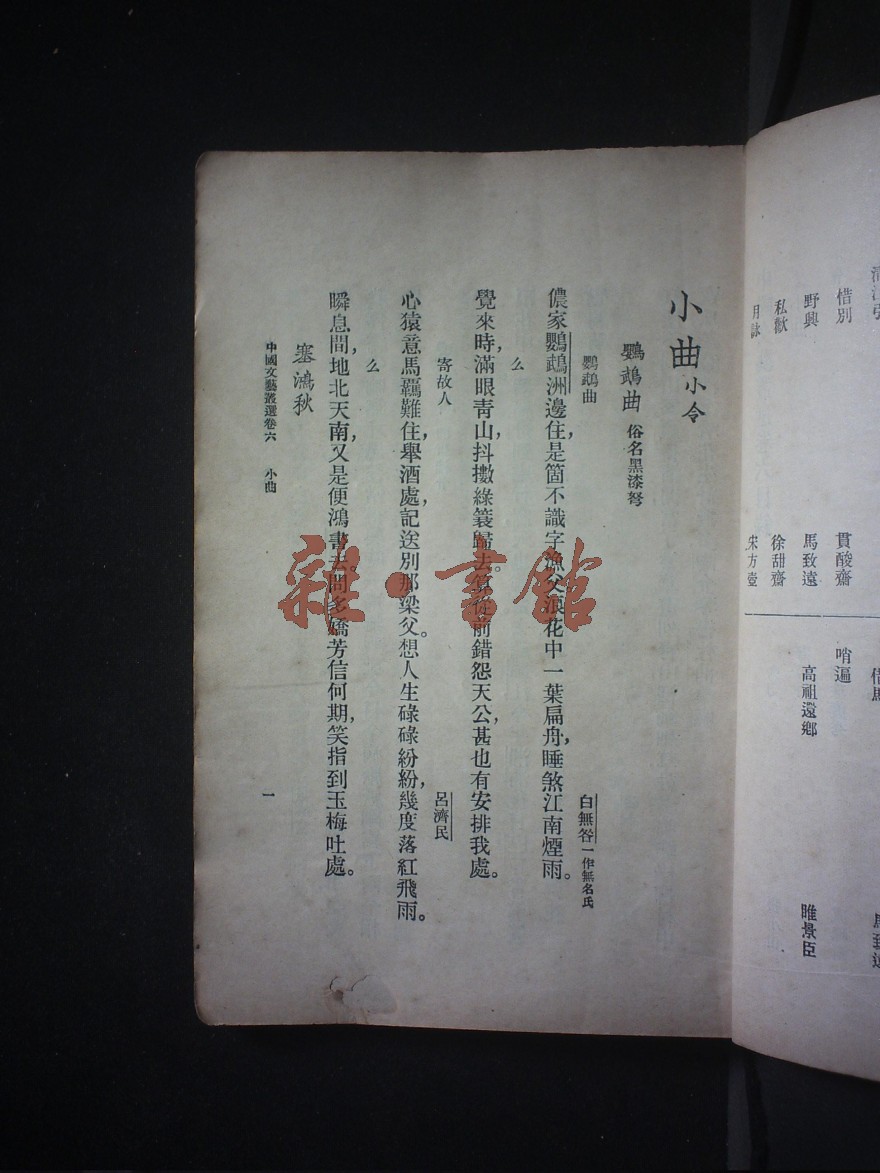 小曲 小令
鸚鵡曲 俗名黑漆弩
鸚鵡曲 白無咎 一作無名氏
儂家鸚鵡洲邊住，是箇不識字漁父。浪花中一葉扁舟，睡煞江南煙雨。
么
覺來時，滿眼青山，抖擻綠簑歸去。算從前錯怨天公，甚也有安排我處。
寄故人 呂濟民
心猿意馬羈難住，舉酒處，記送別那梁父。想人生碌碌紛紛，幾度落紅飛雨。
么
瞬息間，地北天南，又是便鴻書去。問多嬌芳信何期，笑指到玉梅吐處。
塞鴻秋
中國文藝叢選卷六 小曲 一
惜別 貫酸齋
野興 馬致遠
私歡 徐甜齋
宋方壺
哨遍
高祖還鄉 睢景臣
借馬
雜·書館